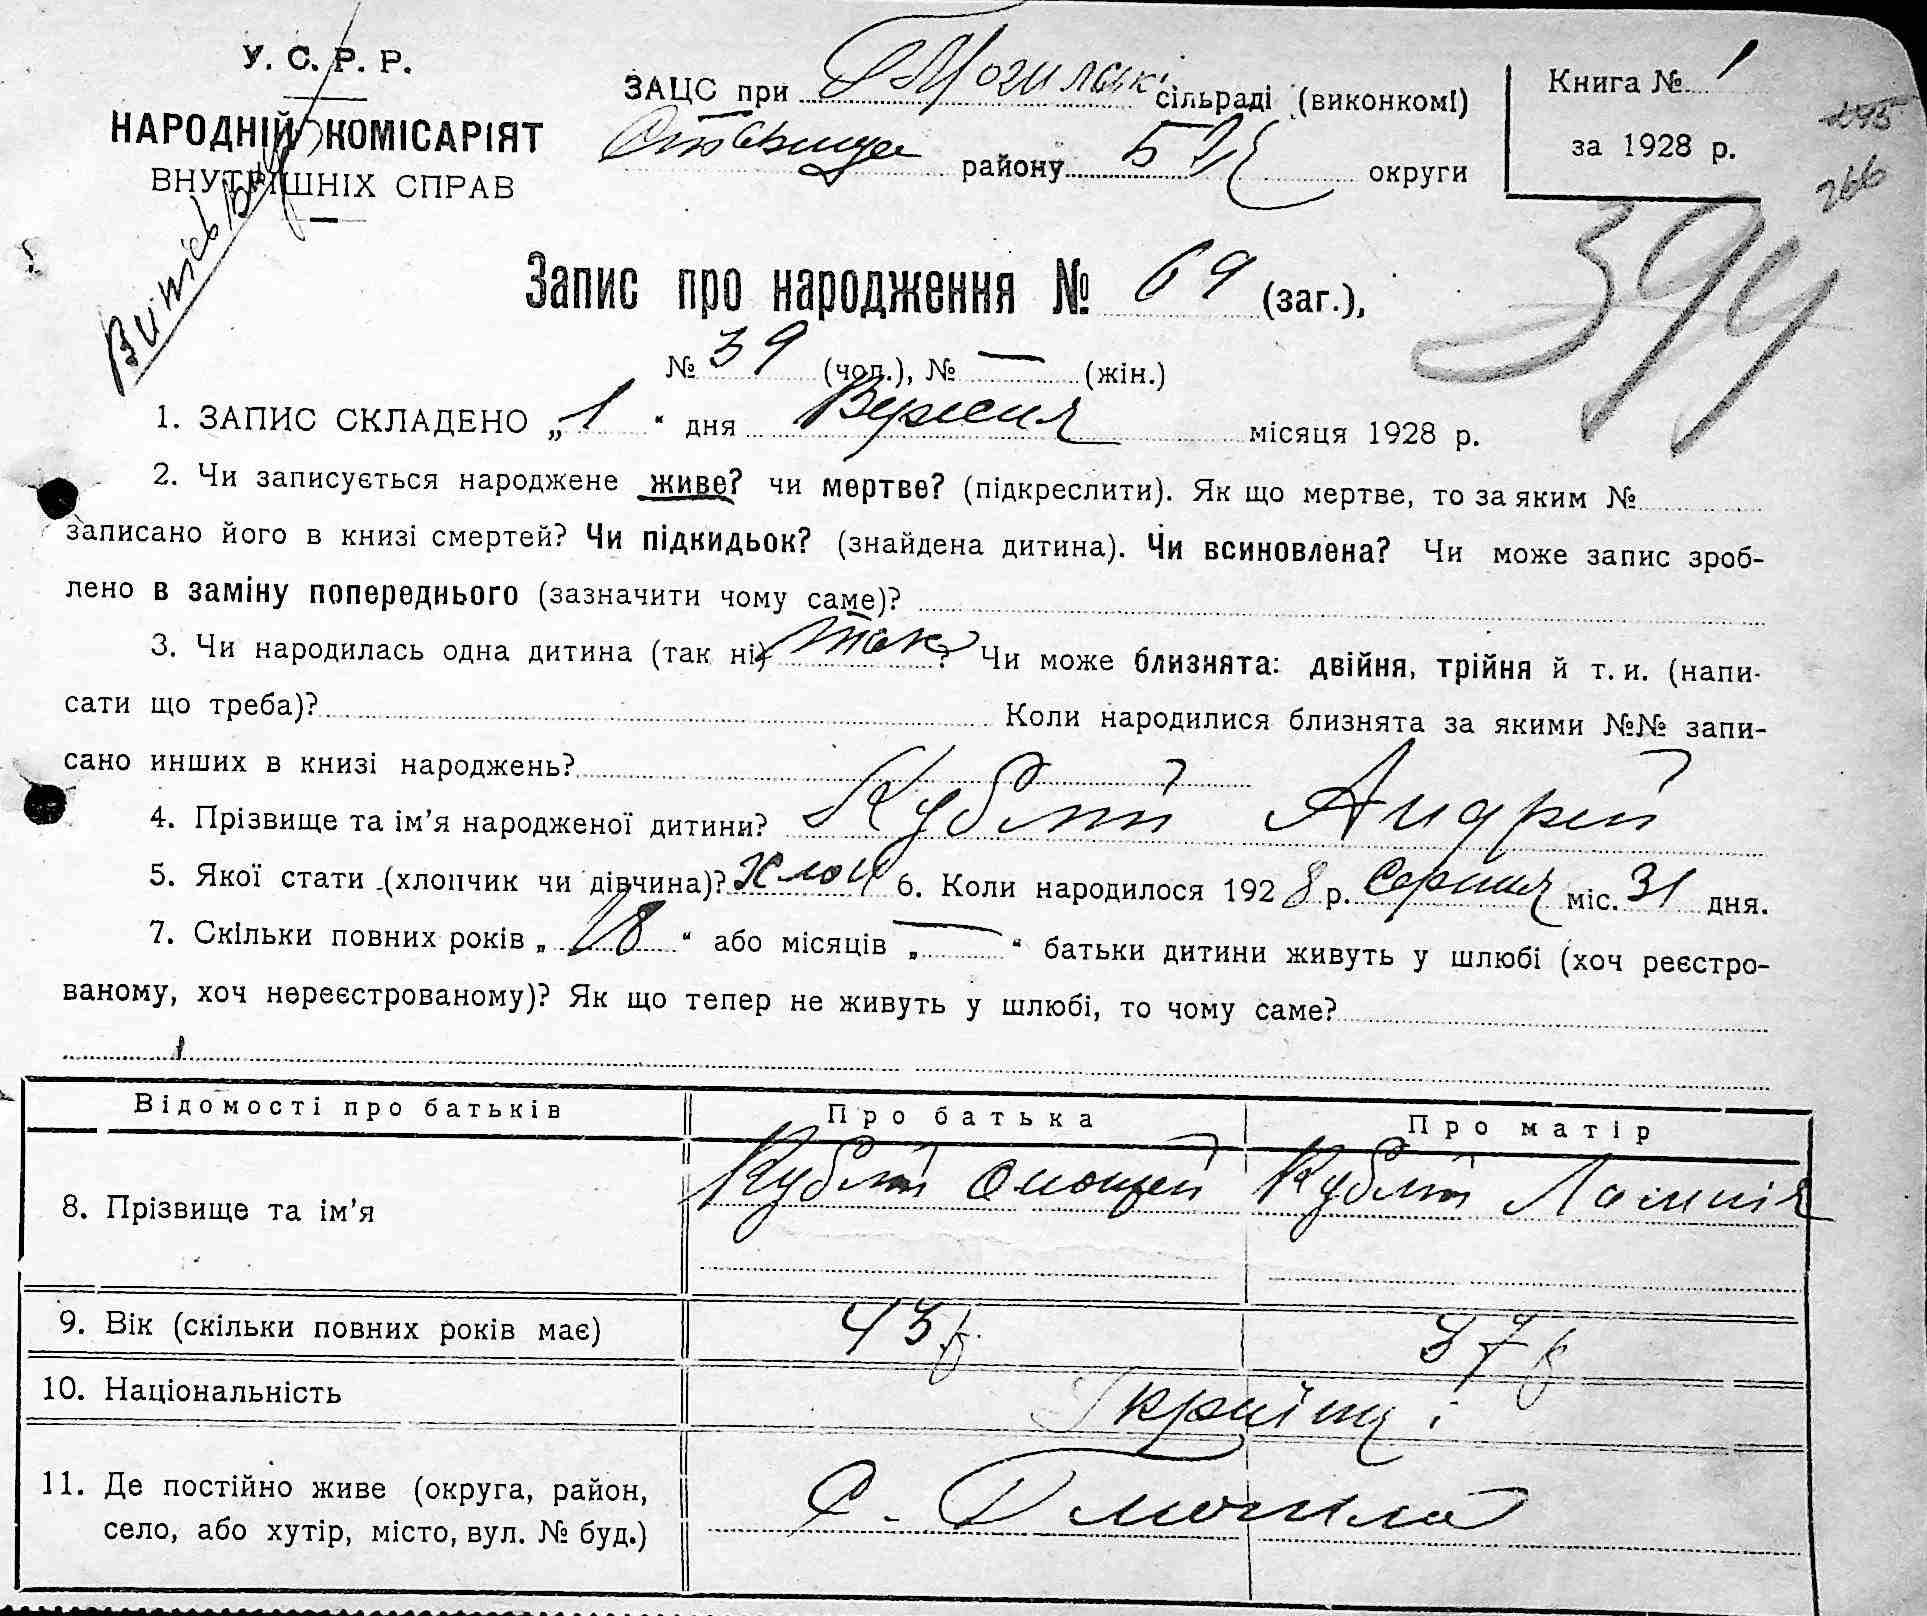 У. С. Р. Р.
НАРОДНІЙ КОМІСАРІЯТ
ВНУТРІШНІХ СПРАВ
ЗАЦС при Г Могильські сільраді (виконкомі)
району БЦ округи
Книга № 1
за 1928 р.
145
266
394
Запис про народження № 69 (заг.),
№ 39 (чол.), № — (жін.)
1. ЗАПИС СКЛАДЕНО „1“ дня Вересня місяця 1928 р.
2. Чи записується народжене живе? чи мертве? (підкреслити). Як що мертве, то за яким №
записано його в книзі смертей? Чи підкидьок? (знайдена дитина). Чи всиновлена? Чи може запис зроб-
лено в заміну попереднього (зазначити чому саме)?
3. Чи народилась одна дитина (так ні) Так? Чи може близнята: двійня, трійня й т. и. (напи-
сати що треба)? Коли народилися близнята за якими №№ запи-
сано инших в книзі народжень?
4. Прізвище та ім’я народженої дитини? Кублій Андрій
5. Якої стати (хлопчик чи дівчина)? Хлоп 6. Коли народилося 1928 р. Серпня міс. 31 дня.
7. Скільки повних років „18“ або місяців „—“ батьки дитини живуть у шлюбі (хоч реєстро-
ваному, хоч нереєстрованому)? Як що тепер не живуть у шлюбі, то чому саме?
Відомості про батьків Про батька Про матір
8. Прізвище та ім’я Кублій Кублій
9. Вік (скільки повних років має) 43 р. 37 р
10. Національність Українці
11. Де постійно живе (округа, район,
село, або хутір, місто, вул. № буд.) С. Г могила